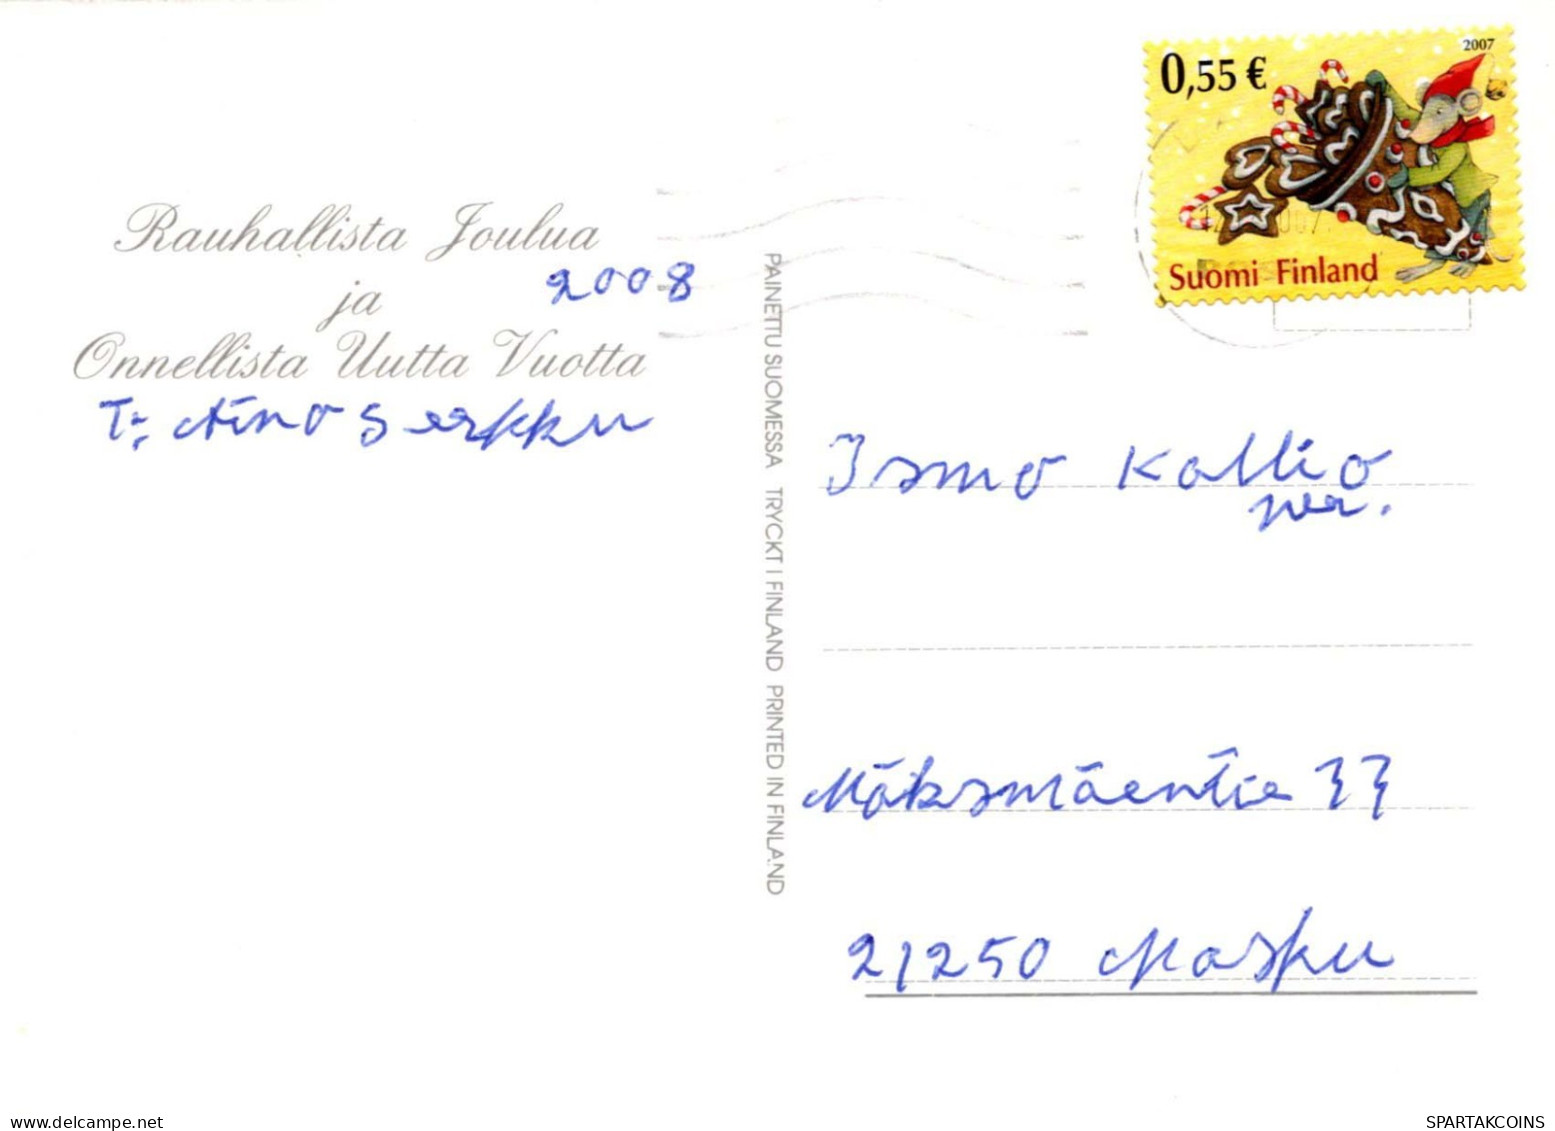 0,55 €
2007
Suomi Finland
Rauhallista Joulua
ja
2008
Onnellista Uutta Vuotta
T: Aino Serkku
PAINETTU SUOMESSA TRYCKT I FINLAND PRINTED IN FINLAND
Ismo Kallio
per.
21250 Masku
https://www.delcampe.net
SPARTAKCOINS